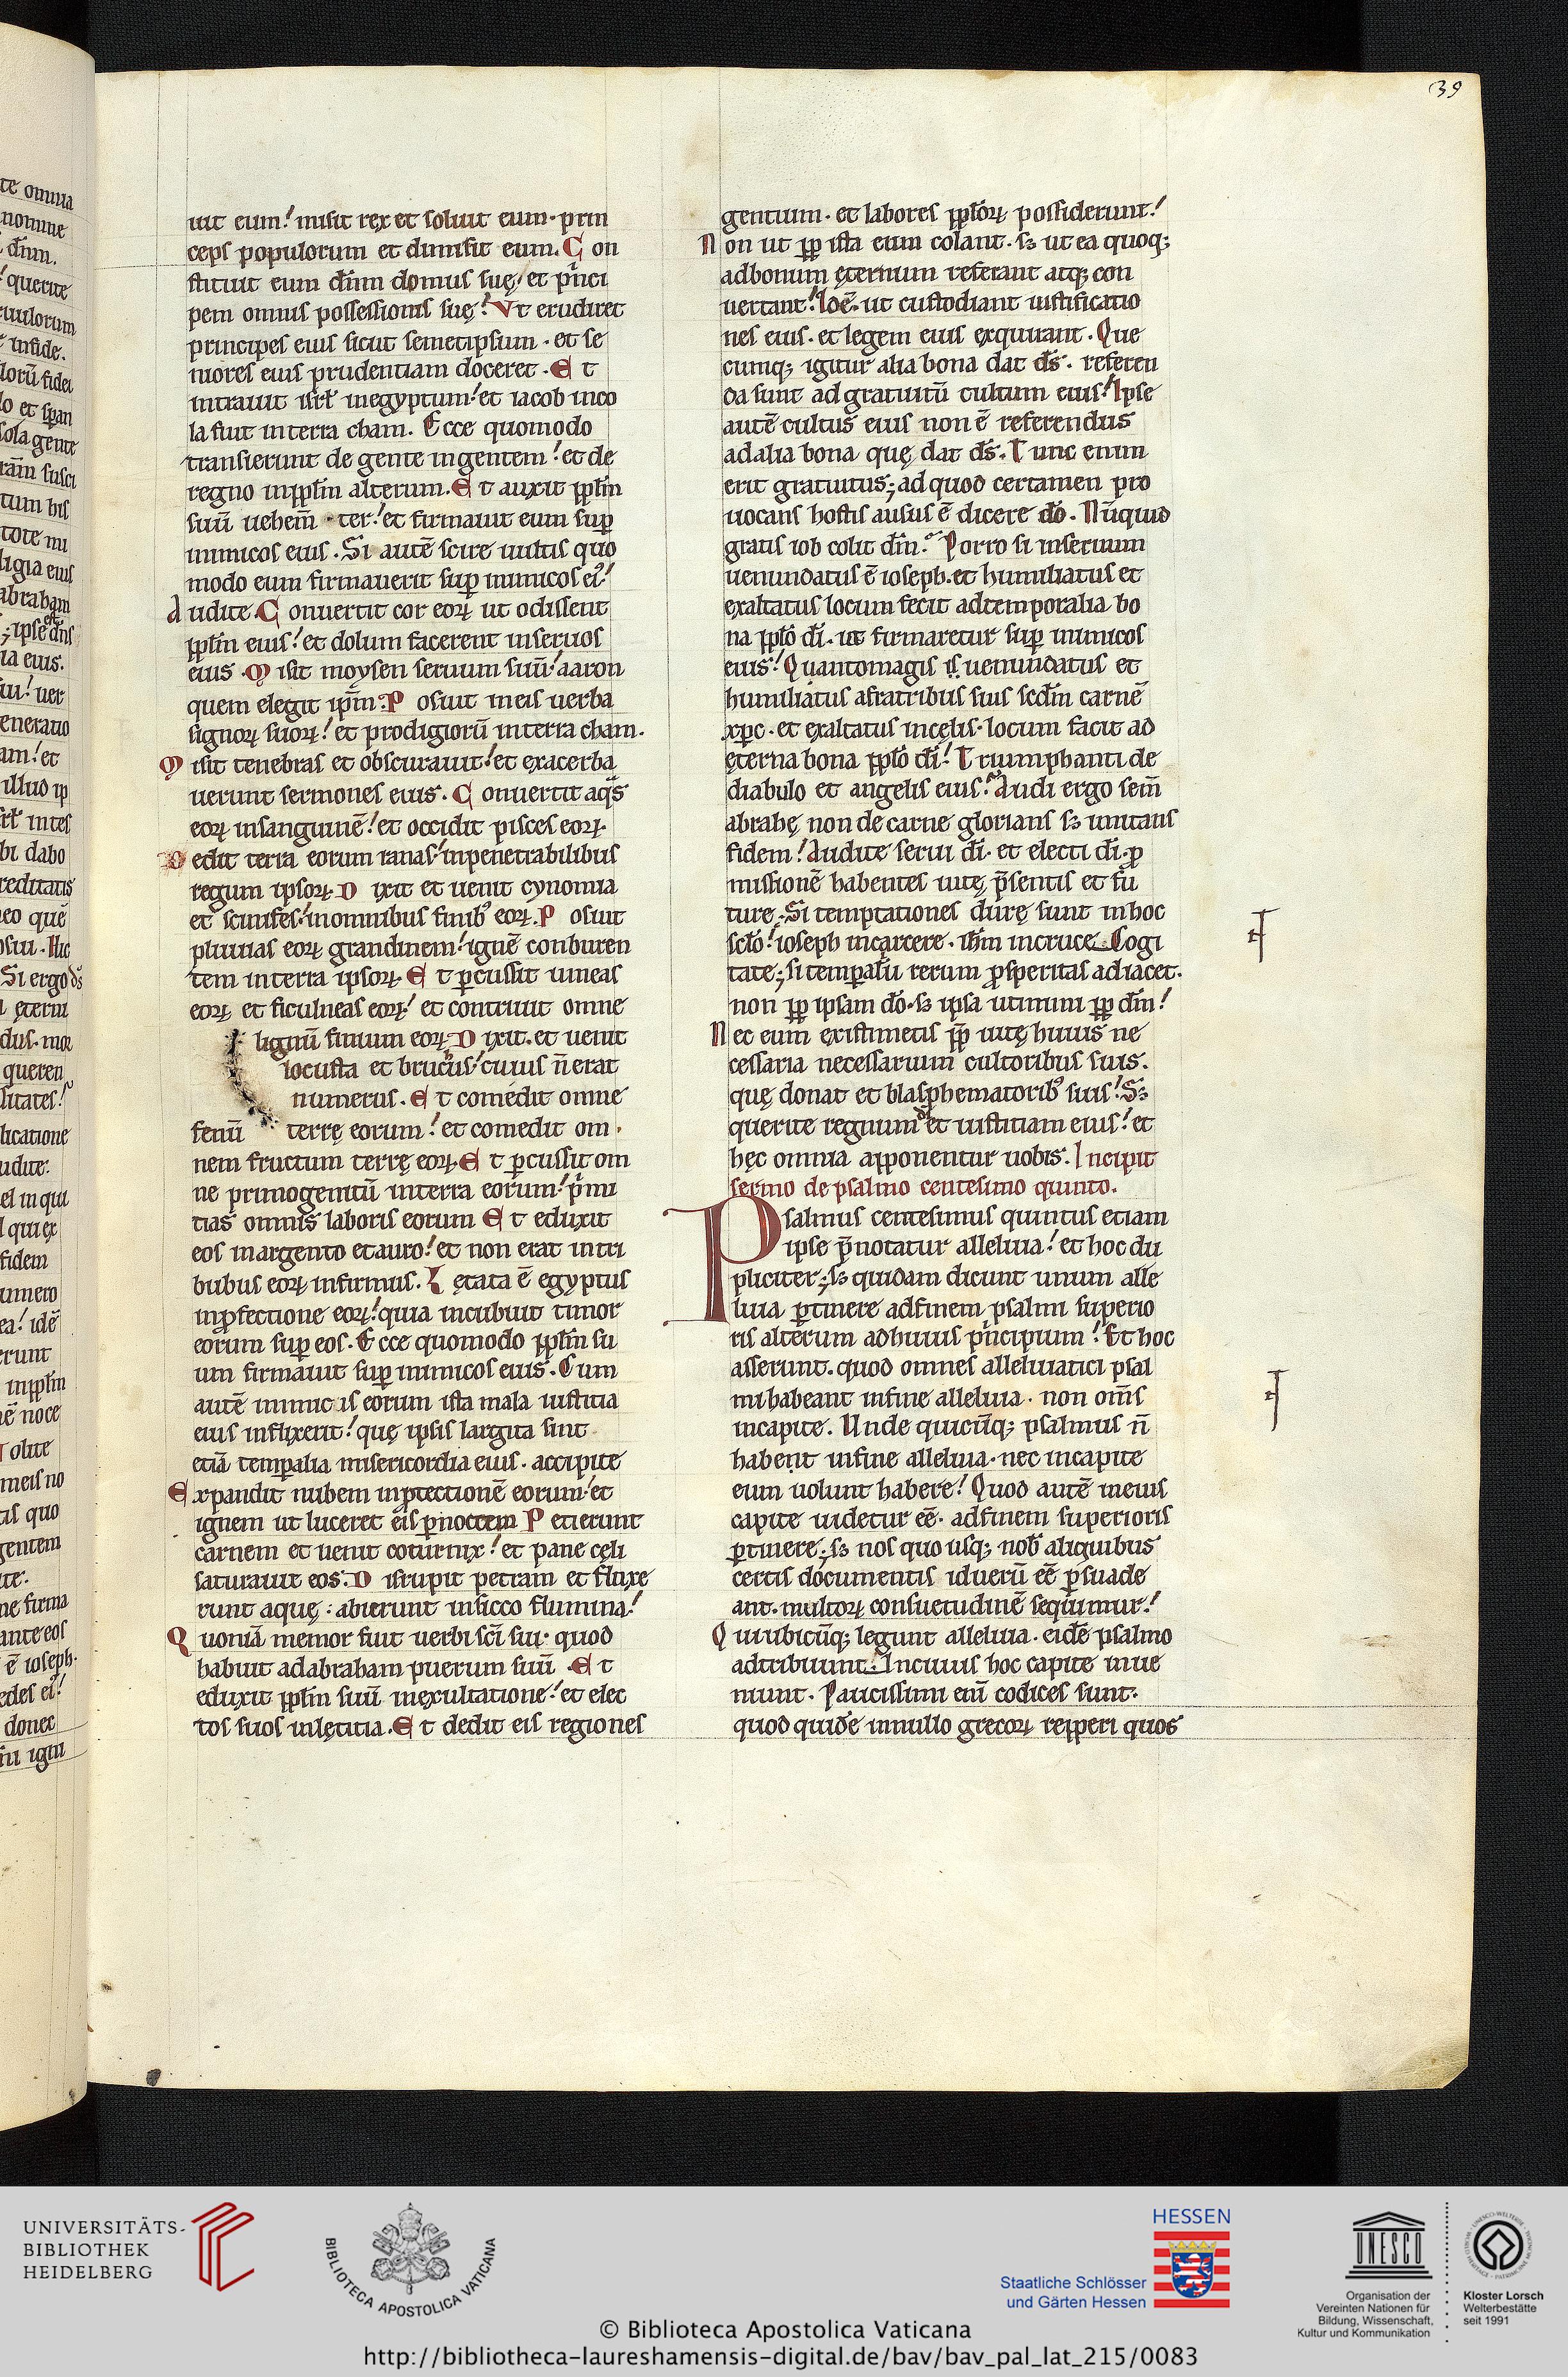 39
uit eum! misit rex et soluit eum. prin
ceps populorum et dimisit eum. C on
stituit eum dñm domus suę, et pͥnci
pem omnis possessionis suę! Vt erudiret
principes eius sicut semetipsum. et se
niores eius prudentiam doceret. E t
intrauit isrł inegyptum! et iacob inco
la fuit interra cham. Ecce quomodo
transierunt de gente ingentem! et de
regno inpplm̃ alterum. E t auxit pplm̃
suũ uehem̃ ter! et firmauit eum suꝑ
inimicos eius. Si autẽ scire uultis quo
modo eum firmauerit suꝑ inimicos ei᷒!
Audite. C onuertit cor eoꝝ ut odissent
pplm̃ eius! et dolum facerent inseruos
eius. M isit moysen seruum suũ! aaron
quem elegit ip̃m. P osuit ineis uerba
signoꝝ suoꝝ! et prodigiorũ interra cham.
M isit tenebras et obscurauit! et exacerba
uerunt sermones eius. C onuertit aq̃s
eoꝝ insanguinẽ! et occidit pisces eoꝝ.
D edit terra eorum ranas! inpenetrabilibus
regum ipsoꝝ. D ixit et uenit cynomia
et scinifes! inomnibus finib᷒ eoꝝ. P osuit
pluuias eoꝝ grandinem! ignẽ conburen
tem interra ipsoꝝ. E t ꝑcussit uineas
eoꝝ et ficulneas eoꝝ! et contriuit omne
lignũ finium eoꝝ. D ixit. et uenit
locusta et brucus! cuius ñ erat
numerus. E t comedit omne
fenũ terrę eorum! et comedit om
nem fructum terrę eoꝝ. E t ꝑcussit om
ne primogenitũ interra eorum! pͥmi
tias omnis laboris eorum E t eduxit
eos inargento etauro! et non erat intri
bubus eoꝝ infirmus. L ętata ẽ egyptus
inꝓfectione eoꝝ! quia incubuit timor
eorum suꝑ eos. Ecce quomodo pplm̃ su
um firmauit suꝑ inimicos eius. Cum
autẽ inimicis eorum ista mala iustitia
eius inflixerit! quę ipsis largita sint
etiã temꝑalia misericordia eius. accipite
E xpandit nubem inꝓtectionẽ eorum! et
ignem ut luceret eis ꝑ noctem P etierunt
carnem et uenit coturnix! et pane cęli
saturauit eos. D isrupit petram et fluxe
runt aquę: abierunt insicco flumina!
Q uoniã memor fuit uerbi sc̃i sui. quod
habuit adabraham puerum suũ. E t
eduxit pplm̃ suũ inexultatione! et elec
tos suos inlętitia. E t dedit eis regiones
gentium. et labores pploꝝ possiderunt!
N on ut ꝓp ista eum colant. sꝫ ut ea quoqꝫ
adbonum ęternum referant atqꝫ con
uertant! Idẽ. ut custodiant iustificatio
nes eius. et legem eius exquirant. Que
cumqꝫ igitur alia bona dat d̃s. referen
da sunt adgratuitũ cultum eius! Ipse
autẽ cultus eius non ẽ referendus
adalia bona quę dat d̃s. Tunc enim
erit gratuitus; ad quod certamen pro
uocans hostis ausus ẽ dicere dõ. Nũquid
gratis iob colit dm̃? Porro si inseruum
uenundatus ẽ ioseph. et humiliatus et
exaltatus locum fecit adtemporalia bo
na pplõ di̾. ut firmaretur suꝑ inimicos
eius! Quantomagis is uenundatus et
humiliatus afratribus suis scdm̃ carnẽ
xp̃c. et exaltatus incęlis. locum facit ad
ęterna bona pplõ di̾! Triumphanti de
diabulo et angelis eius? Audi ergo sem̃
abrahę non de carne glorians sꝫ imitans
fidem! Audite serui di̾. et electi di̾. ꝓ
missionẽ habentes uitę p̃sentis et fũ
ture. Si temptationes durę sunt inhoc
scło! ioseph incarcere. ihm̃ incruce Cogi
tate; si temꝑaliũ rerum ꝓsperitas adiacet.
non ꝓp ipsam dõ. sꝫ ipsa utimini ꝓp dm̃!
N ec eum existimetis ꝓp uitę huius ne
cessaria necessarium cultoribus suis.
quę donat et blasphematorib᷒ suis! Sꝫ
querite regnum di̾ et iustitiam eius! et
hęc omnia apponentur uobis. Incipit
sermo de psalmo centesimo quinto.
Psalmus centesimus quintus etiam
ipse p̃notatur alleluia! et hoc du
pliciter; sꝫ quidam dicunt unum alle
luia ꝑtinere adfinem psalmi superio
ris alterum adhuius pͥncipium! Et hoc
asserunt. quod omnes alleluiatici psal
mi habeant infine alleluia. non om̃s
incapite. Unde quicũqꝫ psalmus ñ
habent infine alleluia. nec incapite
eum uolunt habere! Quod autẽ ineius
capite uidetur eẽ. adfinem superioris
ꝑtinere; sꝫ nos quo usqꝫ nob̃ aliquibus
certis documentis id uerũ eẽ ꝑsuade
ant. multoꝝ consuetudinẽ sequimur!
Q ui ubicũqꝫ legunt alleluia. eidẽ psalmo
adtribuunt. Incuius hoc capite inue
niunt. Paucissimi eni̾ codices sunt.
quod quidẽ innullo grecoꝝ repperi quos
UNIVERSITÄTS-
BIBLIOTHEK
HEIDELBERG
BIBLIOTECA APOSTOLICA VATICANA
HESSEN
Staatliche Schlösser
und Gärten Hessen
UNESCO
Organisation der
Vereinten Nationen für
Bildung, Wissenschaft,
Kultur und Kommunikation
Kloster Lorsch
Welterbestätte
seit 1991
© Biblioteca Apostolica Vaticana
http://bibliotheca-laureshamensis-digital.de/bav/bav_pal_lat_215/0083